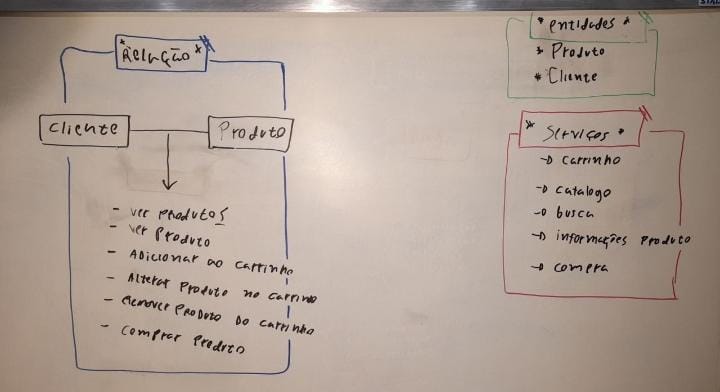 * Relação *
Cliente
Produto
- ver produtos
- ver Produto
- Adicionar ao carrinho
- Alterar Produto no carrino
- Remover Produto Do carrinho
- comprar Produto
* entidades *
* Produto
* Cliente
* Serviços *
→ carrinho
→ catalogo
→ busca
→ informações Produto
→ compra